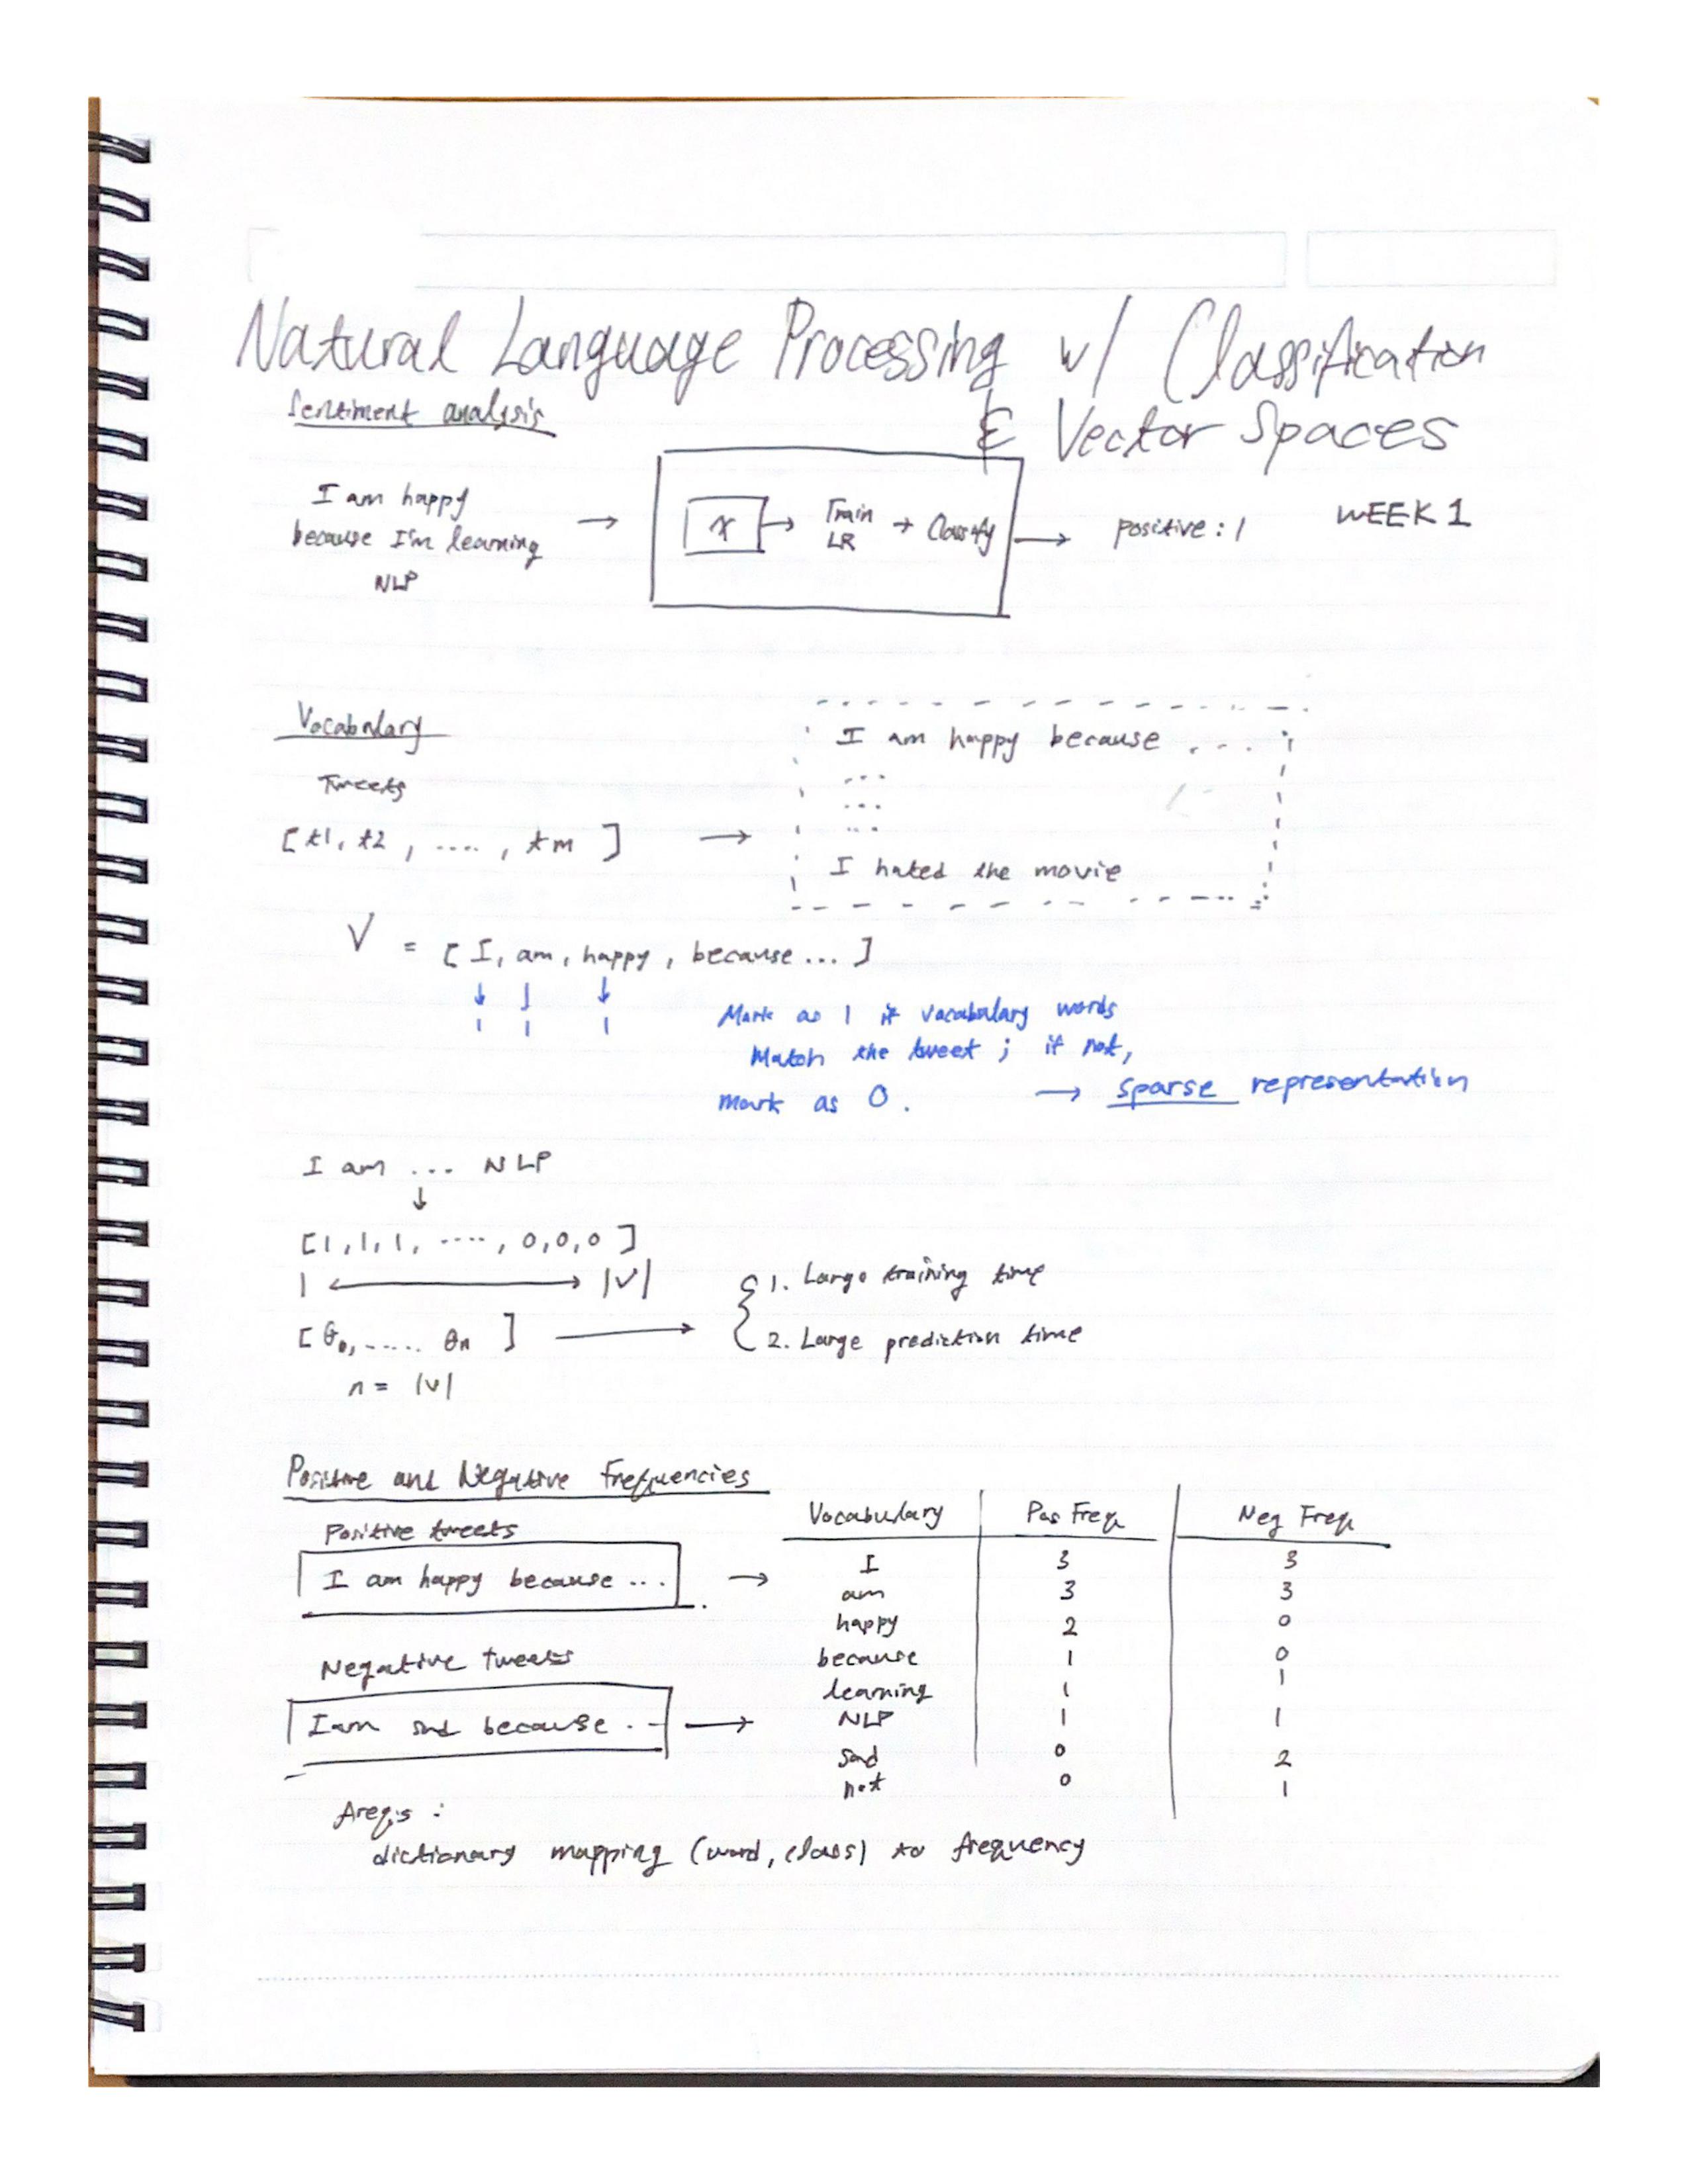 Natural Language Processing w/ Classification
& Vector Spaces
WEEK 1
Sentiment analysis
I am happy
because I'm learning
NLP
→ x → Train LR → Classify → positive : 1
Vocabulary
Tweets
[t1, t2, ...., tm] →
I am happy because ....
...
...
...
I hated the movie
V = [I, am, happy, because ...]
↓ ↓ ↓
1 1 1
Mark as 1 if vocabulary words
Match the tweet ; if not,
mark as 0. → sparse representation
I am ... NLP
↓
[1, 1, 1, ....., 0, 0, 0]
1 ⟷ |V|
[θ0, ..... θn] →
1. Large training time
2. Large prediction time
n = |V|
Positive and Negative Frequencies
Positive tweets
I am happy because ... →
Negative tweets
I am sad because ... →
Vocabulary Pos Freq Neg Freq
I 3 3
am 3 3
happy 2 0
because 1 0
learning 1 1
NLP 1 1
sad 0 2
not 0 1
dictionary mapping (word, class) to frequency